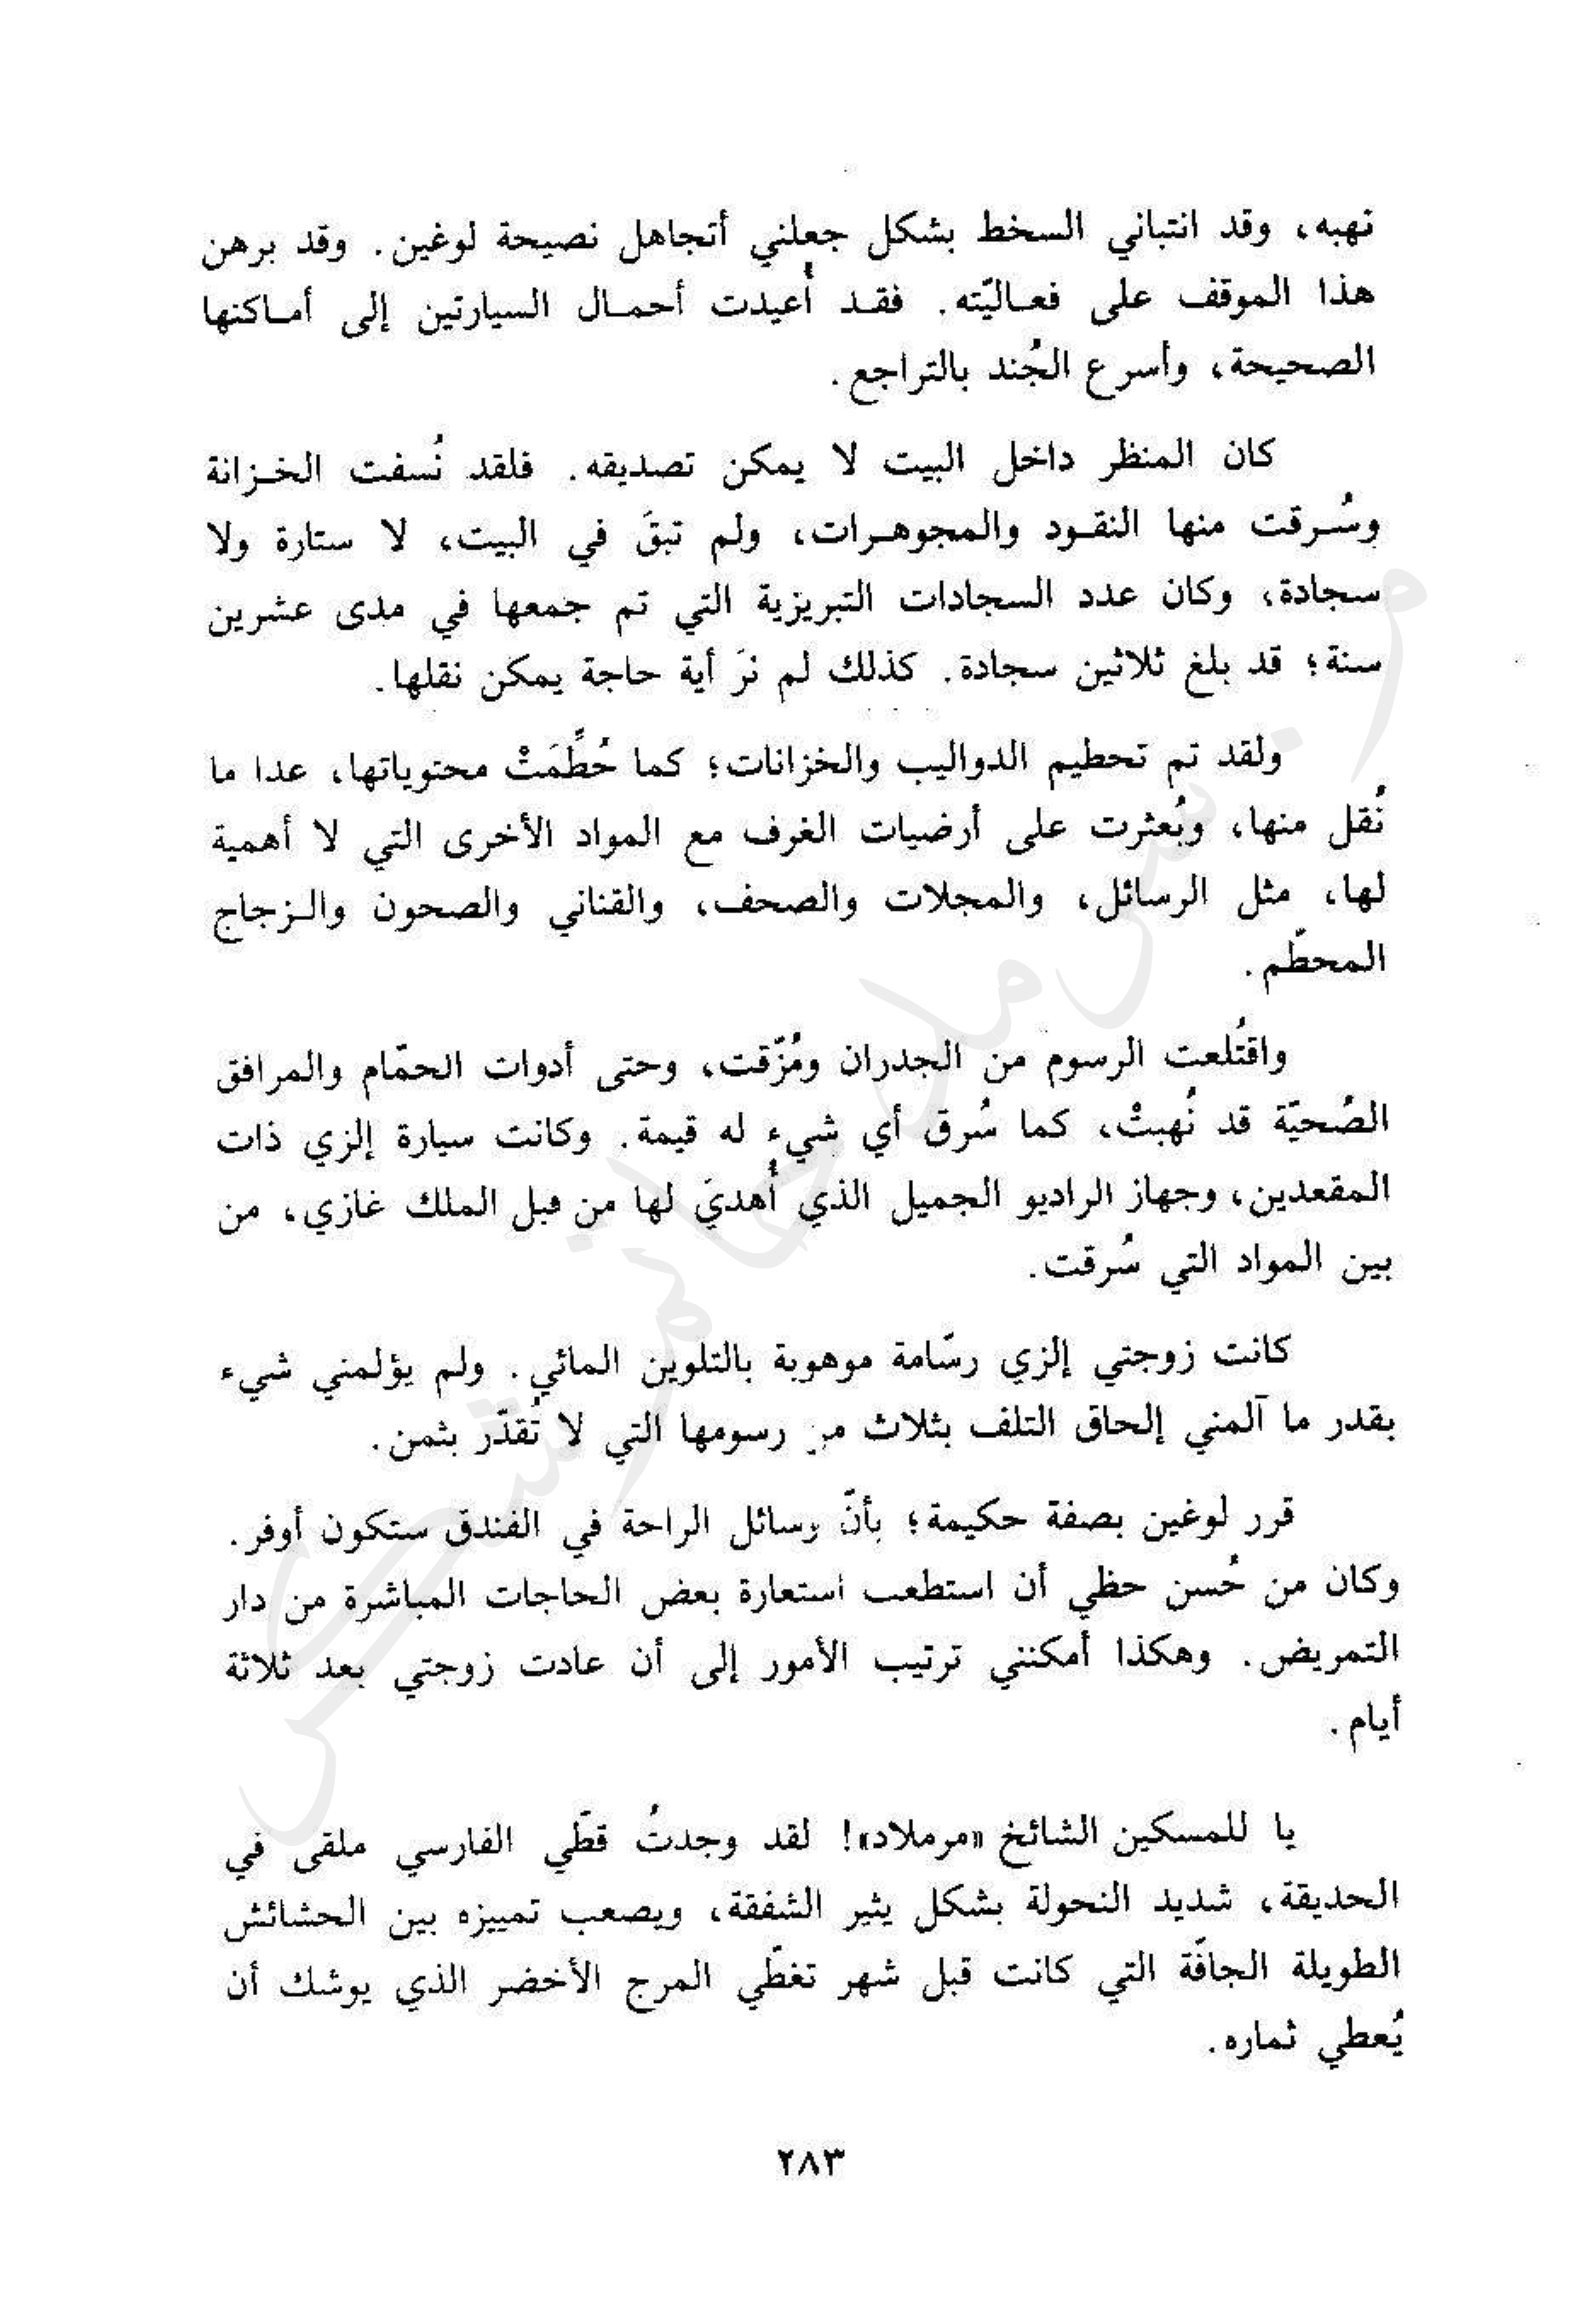 نهبه، وقد انتباني السخط بشكل جعلني أتجاهل نصيحة لوغين. وقد برهن
هذا الموقف على فعـاليّته. فقـد أُعيدت أحمـال السيارتين إلى أمـاكنها
الصحيحة، وأسرع الجُند بالتراجع.
كان المنظر داخل البيت لا يمكن تصديقه. فلقد نُسفت الخـزانة
وسُـرقت منها النقـود والمجوهـرات، ولم تبقَ في البيت، لا ستارة ولا
سجادة، وكان عدد السجادات التبريزية التي تم جمعها في مدى عشرين
سنة؛ قد بلغ ثلاثين سجادة. كذلك لم نرَ أية حاجة يمكن نقلها.
ولقد تم تحطيم الدواليب والخزانات؛ كما حُطِّمَتْ محتوياتها، عدا ما
نُقل منها، وبُعثرت على أرضيات الغرف مع المواد الأخرى التي لا أهمية
لها، مثل الرسائل، والمجلات والصحف، والقناني والصحون والـزجاج
المحطّم.
واقتُلعت الرسوم من الجدران ومُزّقت، وحتى أدوات الحمّام والمرافق
الصُحيّة قد نُهبتْ، كما سُرق أي شيء له قيمة. وكانت سيارة إلزي ذات
المقعدين، وجهاز الراديو الجميل الذي أُهديَ لها من قبل الملك غازي، من
بين المواد التي سُرقت.
كانت زوجتي إلزي رسّامة موهوبة بالتلوين المائي. ولم يؤلمني شيء
بقدر ما آلمني إلحاق التلف بثلاث من رسومها التي لا تُقدّر بثمن.
قرر لوغين بصفة حكيمة؛ بأنّ وسائل الراحة في الفندق ستكون أوفر.
وكان من حُسن حظي أن استطعت استعارة بعض الحاجات المباشرة من دار
التمريض. وهكذا أمكنني ترتيب الأمور إلى أن عادت زوجتي بعد ثلاثة
أيام.
يا للمسكين الشائخ «مرملاد»! لقد وجدتُ قطّي الفارسي ملقى في
الحديقة، شديد النحولة بشكل يثير الشفقة، ويصعب تمييزه بين الحشائش
الطويلة الجافّة التي كانت قبل شهر تغطّي المرج الأخضر الذي يوشك أن
يُعطي ثماره.
٢٨٣